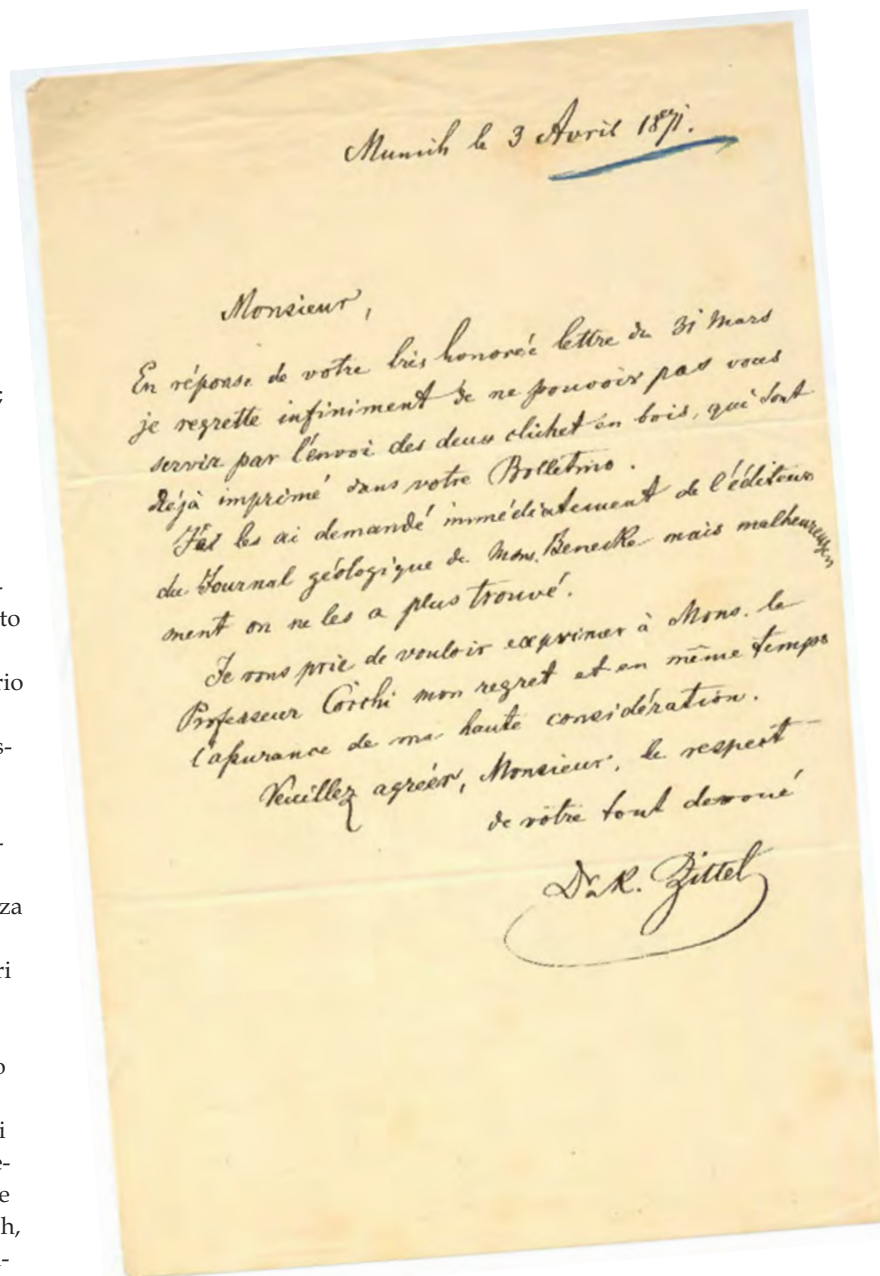 ;
-
to
rio
s-
-
za
ri
o
i
e-
e
h,
-
Munich le 3 Avril 1871.
Monsieur,
En réponse de votre très honorée lettre du 31 Mars
je regrette infiniment de ne pouvoir pas vous
servir par l'envoi des deux clichet en bois, qui sont
déjà imprimé dans votre Bolletino.
les ai demandé immédiatement de l'éditeur
du Journal géologique de Mons. Benecke mais malheureusen
ment on ne les a plus trouvé.
Je vous prie de vouloir exprimer à Mons. le
Professeur Cocchi mon regret et en même temps
l'assurance de ma haute considération.
Veuillez agréer, Monsieur, le respect
de vôtre tout devoué
Dr. K. Zittel